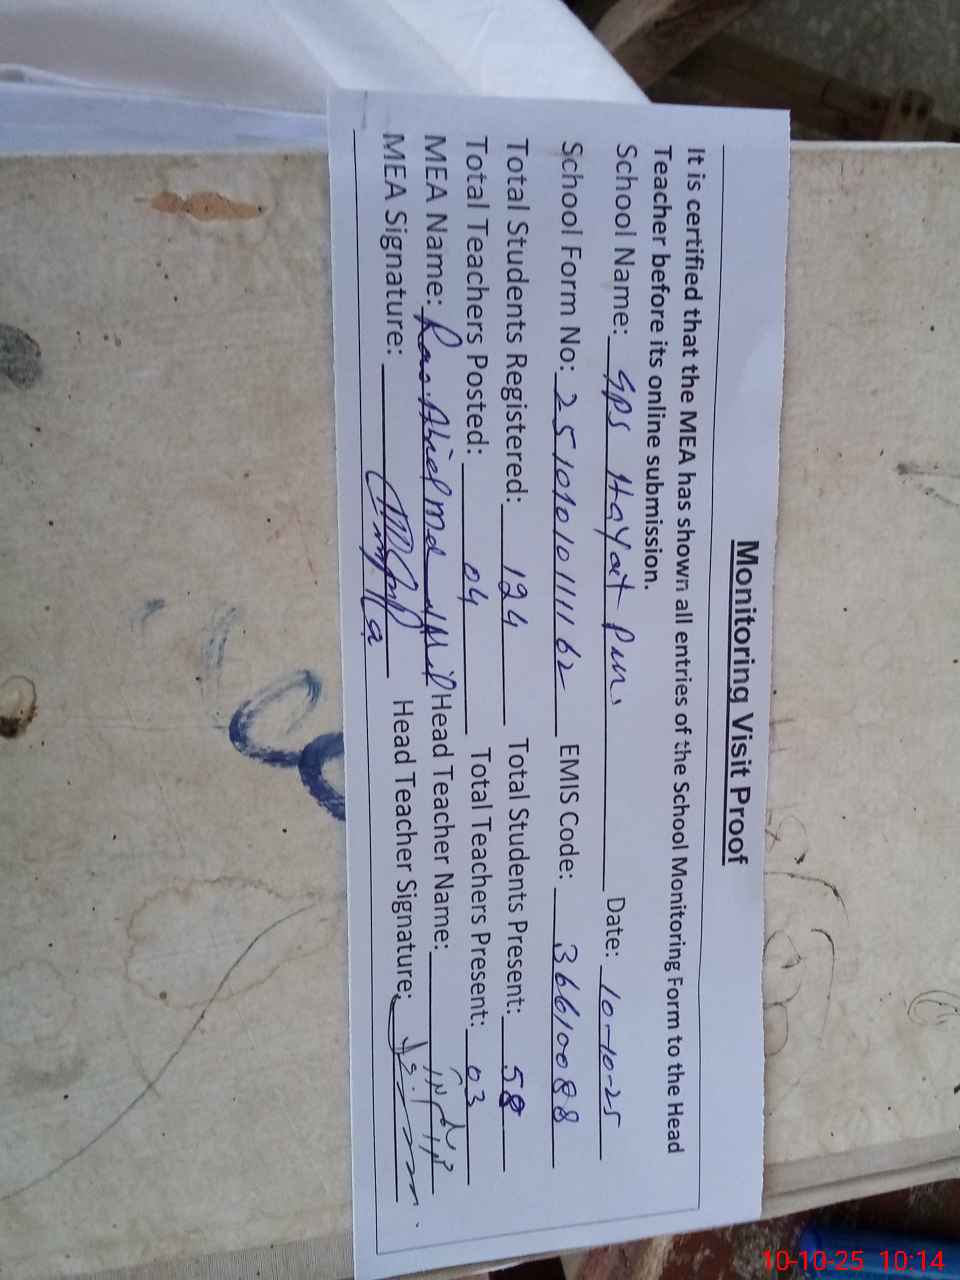 Monitoring Visit Proof
It is certified that the MEA has shown all entries of the School Monitoring Form to the Head
Teacher before its online submission.
School Name: GPS Hayat Date: 10-10-25
School Form No: 25101010111162 EMIS Code: 36610088
Total Students Registered: 124 Total Students Present: 58
Total Teachers Posted: 04 Total Teachers Present: 03
MEA Name: Head Teacher Name:
MEA Signature: Head Teacher Signature:
10-10-25 10:14